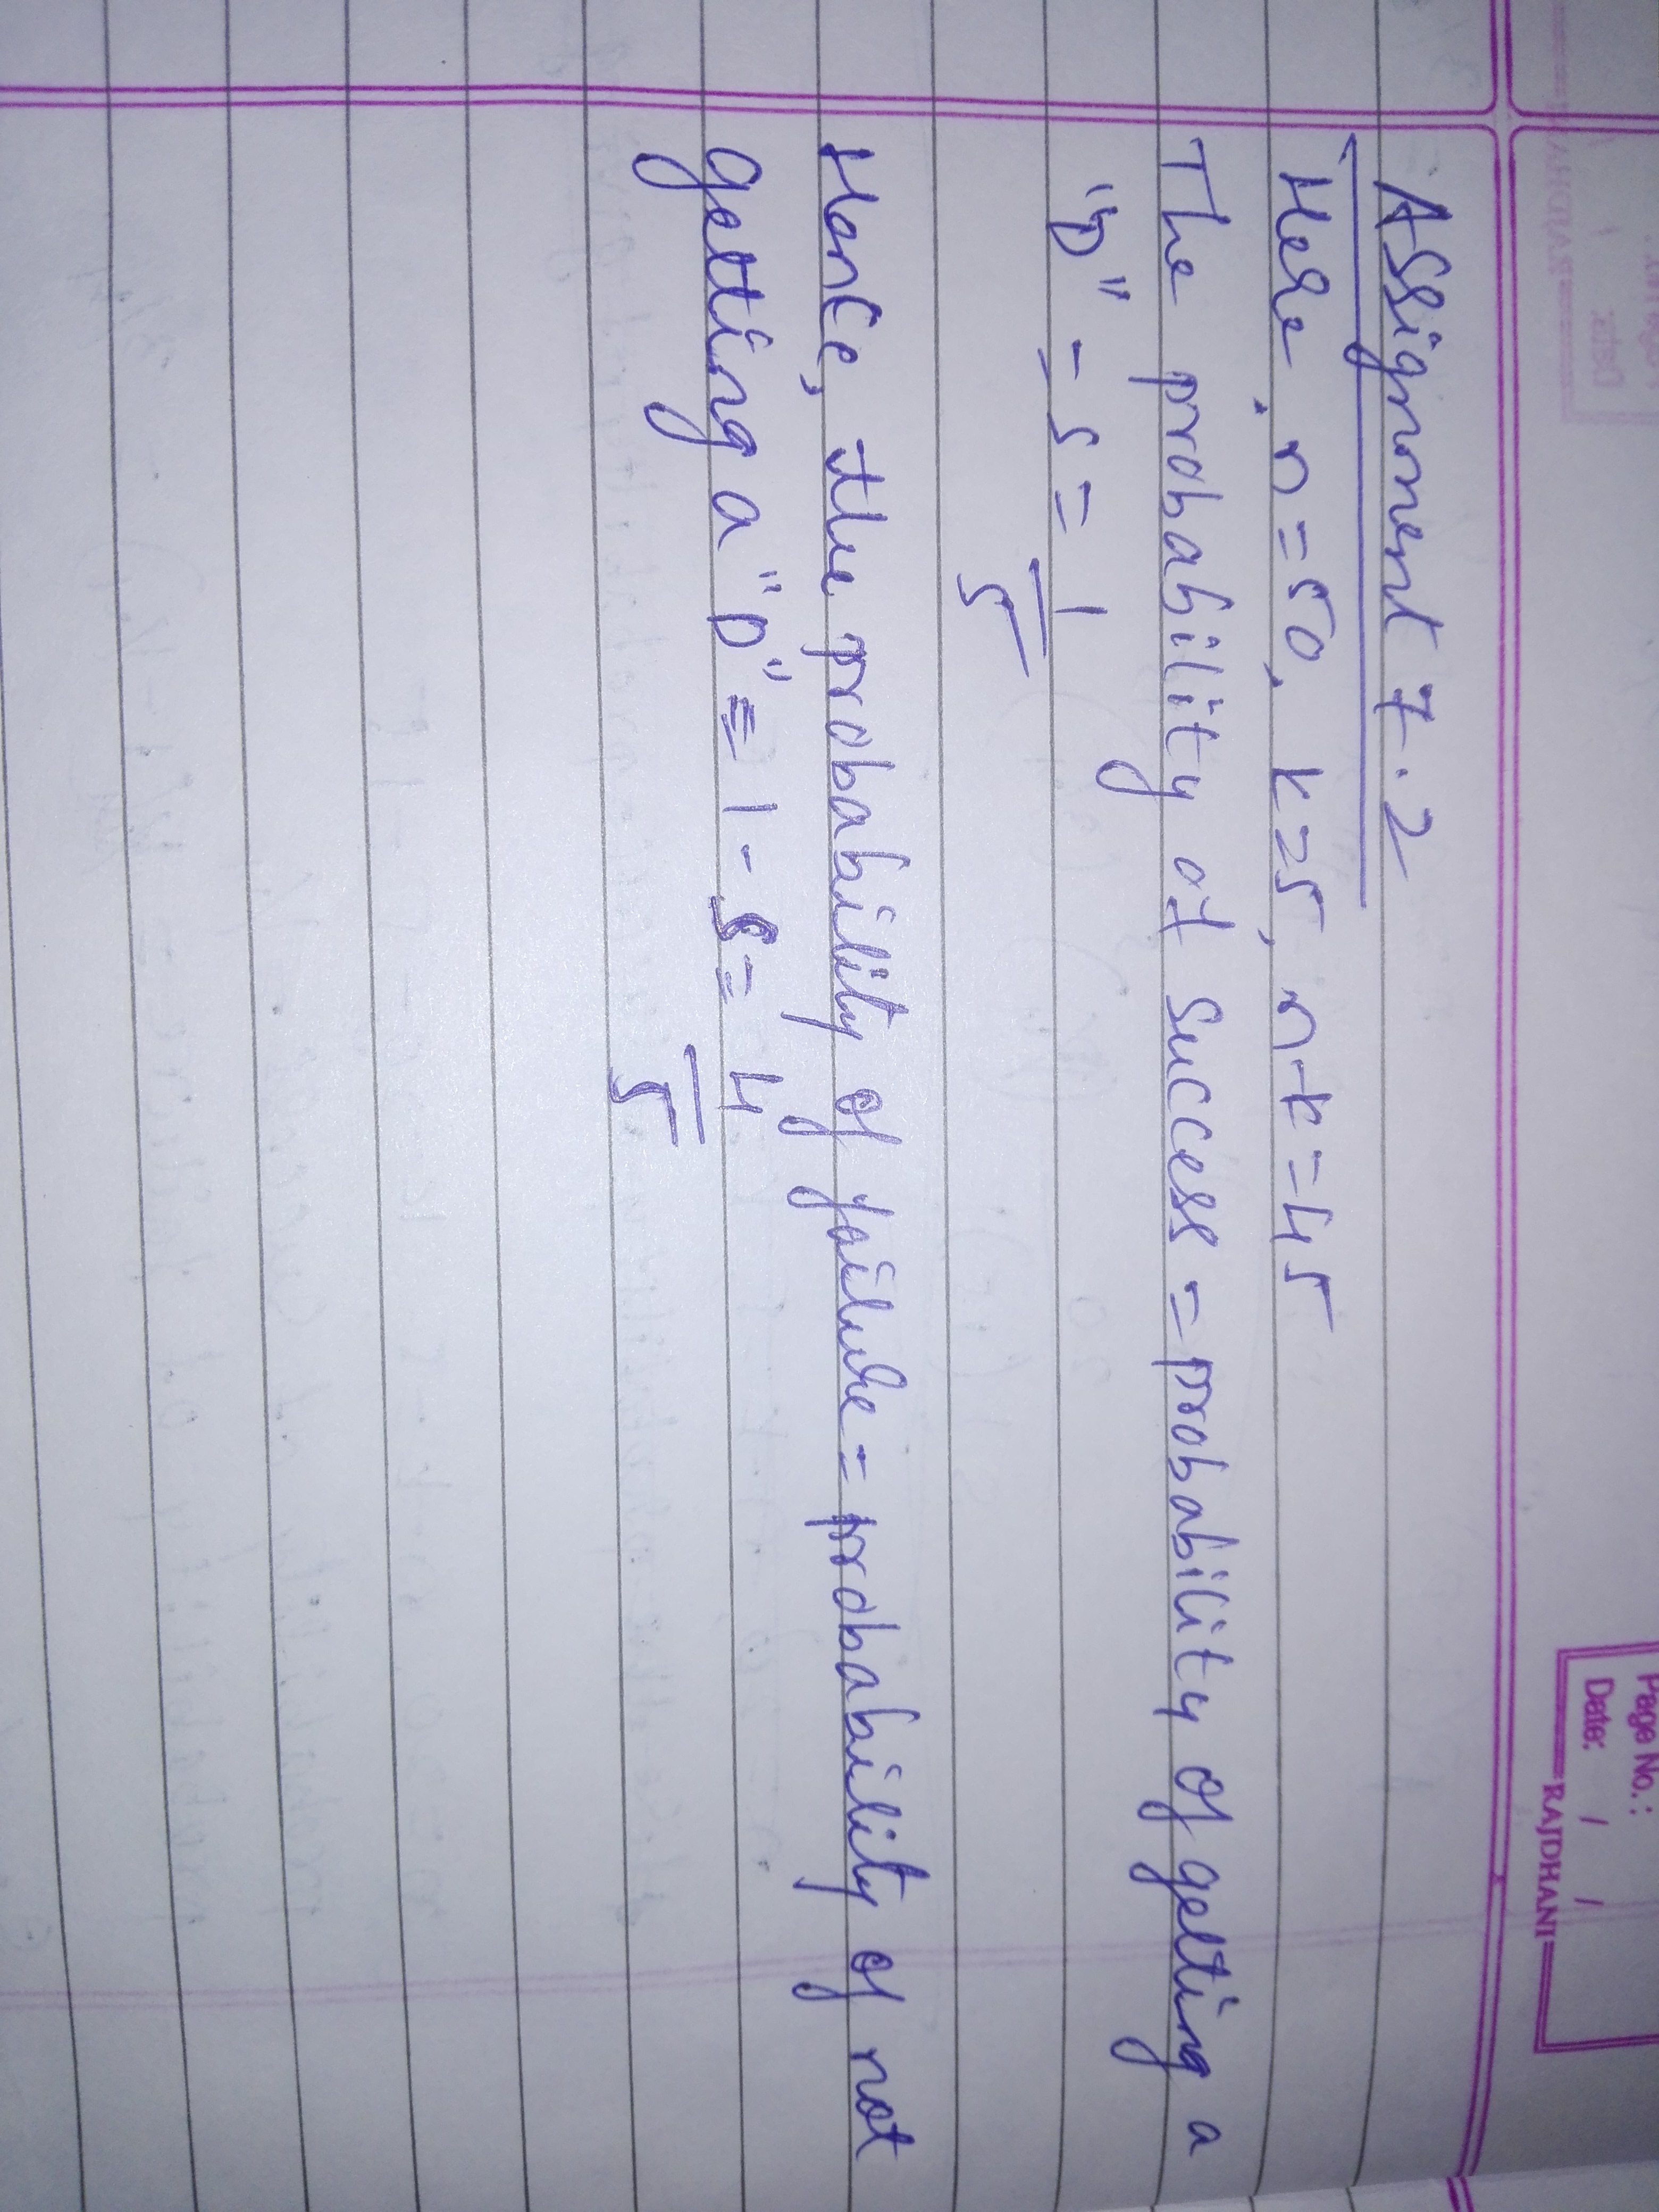 Page No.:
Date: / /
RAJDHANI
Assignment 7.2
Here, n=50, k=5, n-k=45
The probability of success = probability of getting a
"D" = s = 1/5
Hence, the probability of failure = probability of not
getting a "D" = 1 - s = 4/5